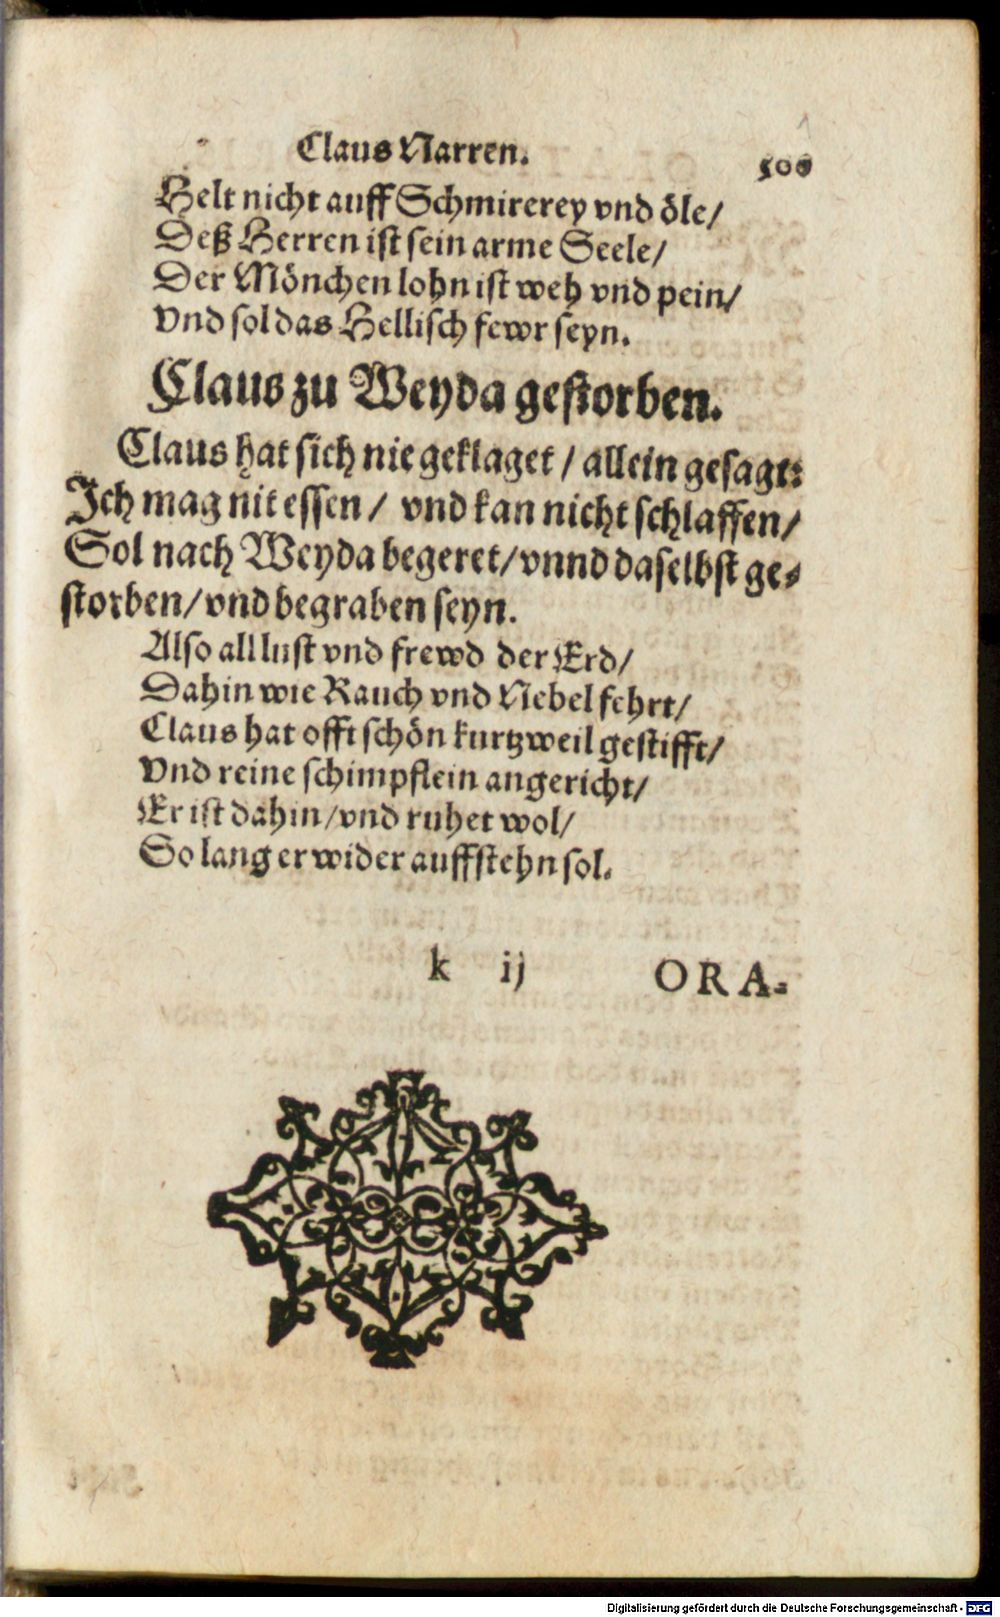 Claus Narren.
500
Helt nicht auff Schmirerey vnd öle/
Deß Herren ist sein arme Seele/
Der Mönchen lohn ist weh vnd pein/
Vnd sol das Hellisch fewr seyn.
Claus zu Weyda gestorben.
Claus hat sich nie geklaget / allein gesagt:
Ich mag nit essen / vnd kan nicht schlaffen/
Sol nach Weyda begeret/vnnd daselbst ge-
storben/vnd begraben seyn.
Also all lust vnd frewd der Erd/
Dahin wie Rauch vnd Nebel fehrt/
Claus hat offt schön kurtzweil gestifft/
Vnd reine schimpflein angericht/
Er ist dahin/vnd ruhet wol/
So lang er wider auffstehn sol.
k ij ORA-
Digitalisierung gefördert durch die Deutsche Forschungsgemeinschaft - DFG